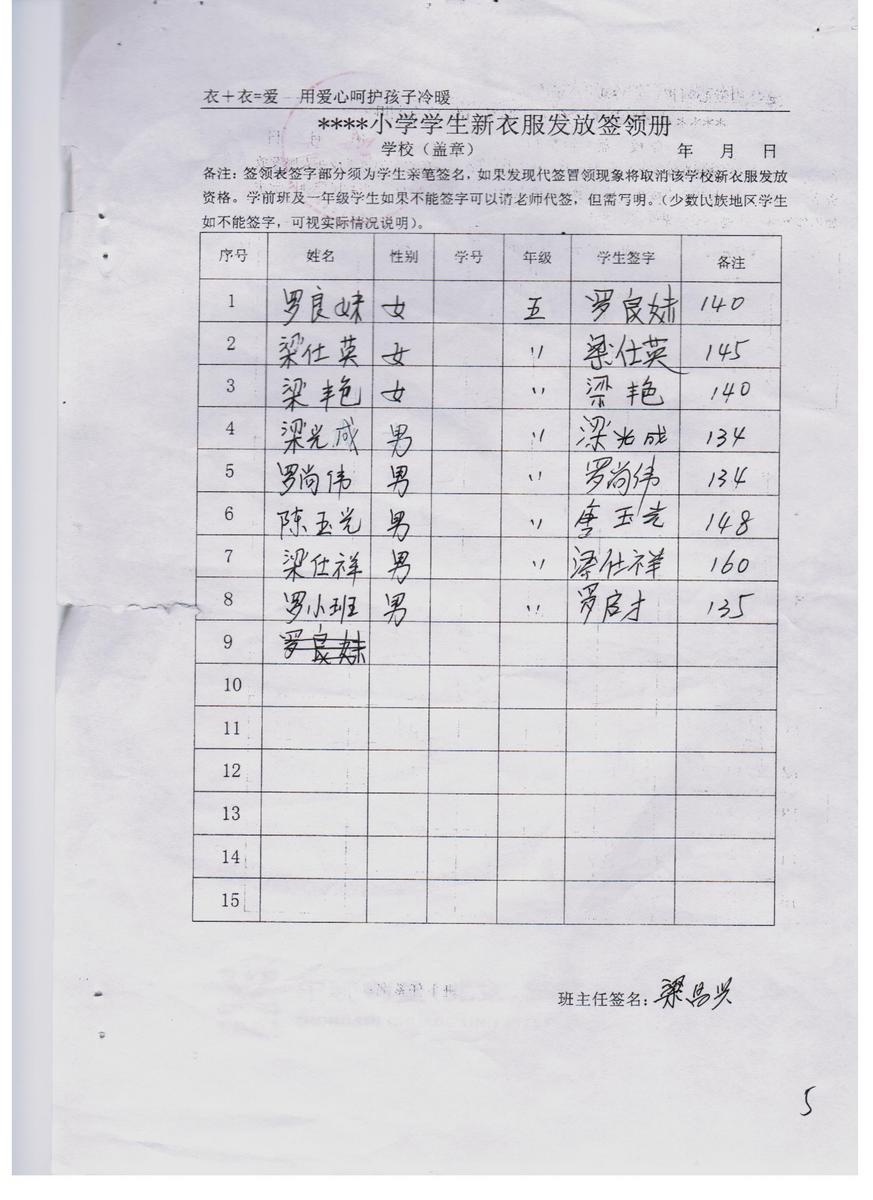 衣＋衣=爱　用爱心呵护孩子冷暖
****小学学生新衣服发放签领册
学校（盖章）　年　月　日
备注：签领表签字部分须为学生亲笔签名，如果发现代签冒领现象将取消该学校新衣服发放
资格。学前班及一年级学生如果不能签字可以请老师代签，但需写明。（少数民族地区学生
如不能签字，可视实际情况说明）。
序号 姓名 性别 学号 年级 学生签字 备注
1 罗良妹 女 五 罗良妹 140
2 梁仕英 女 〃 梁仕英 145
3 梁丰艳 女 〃 梁丰艳 140
4 梁光成 男 〃 梁光成 134
5 罗尚伟 男 〃 罗尚伟 134
6 陈玉光 男 〃 唐玉光 148
7 梁仕祥 男 〃 梁仕祥 160
8 罗小班 男 〃 罗启才 135
9 罗良妹
10
11
12
13
14
15
班主任签名：梁昌兴
5